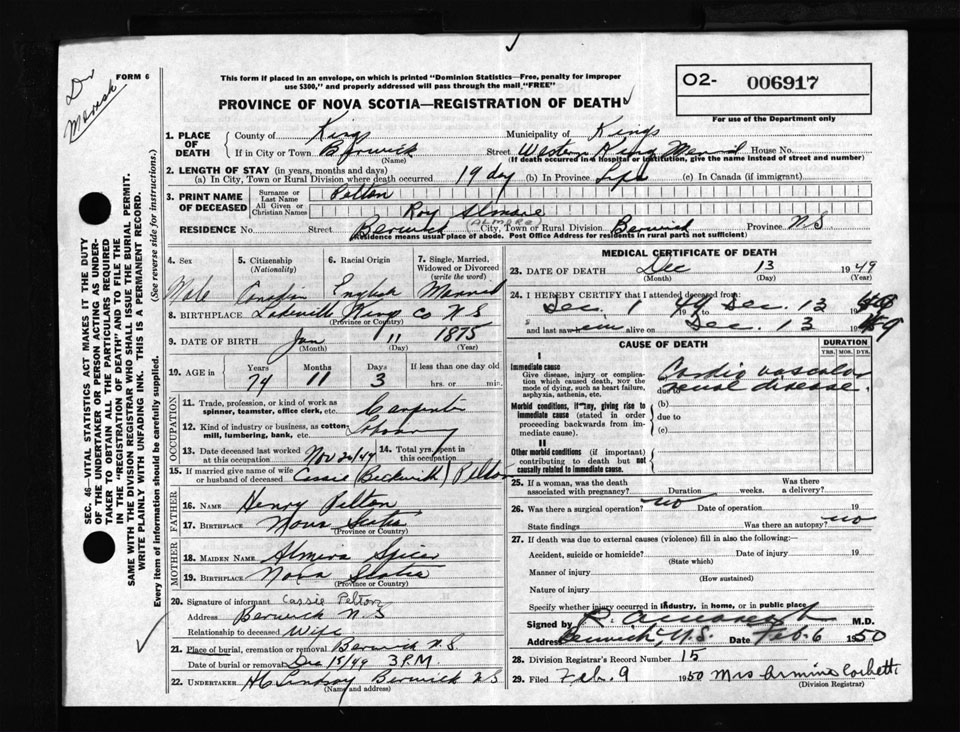 Dr
Marsh
FORM 6
This form if placed in an envelope, on which is printed "Dominion Statistics—Free, penalty for improper
use $300," and properly addressed will pass through the mail "FREE"
PROVINCE OF NOVA SCOTIA—REGISTRATION OF DEATH
O2- 006917
For use of the Department only
SEC. 46—VITAL STATISTICS ACT MAKES IT THE DUTY
OF THE UNDERTAKER OR PERSON ACTING AS UNDER-
TAKER TO OBTAIN ALL THE PARTICULARS REQUIRED
IN THE "REGISTRATION OF DEATH" AND TO FILE THE
SAME WITH THE DIVISION REGISTRAR WHO SHALL ISSUE THE BURIAL PERMIT.
WRITE PLAINLY WITH UNFADING INK. THIS IS A PERMANENT RECORD.
Every item of information should be carefully supplied. (See reverse side for instructions.)
1. PLACE OF DEATH County of Kings Municipality of Kings
If in City or Town Berwick Street Western King Memorial House No.
(Name) (If death occurred in a hospital or institution, give the name instead of street and number)
2. LENGTH OF STAY (in years, months and days)
(a) In City, Town or Rural Division where death occurred 19 day (b) In Province Life (c) In Canada (if immigrant)
3. PRINT NAME OF DECEASED Surname or Last Name Pelton
All Given or Christian Names Roy Almore
(ALMORE)
RESIDENCE No. Street Berwick City, Town or Rural Division Berwick Province N S
(Residence means usual place of abode. Post Office Address for residents in rural parts not sufficient)
4. Sex 5. Citizenship (Nationality) 6. Racial Origin 7. Single, Married, Widowed or Divorced (write the word)
Male Canadian English Married
8. BIRTHPLACE Lakeville Kings Co N S
(Province or Country)
9. DATE OF BIRTH Jan 11 1875
(Month) (Day) (Year)
10. AGE in Years 74 Months 11 Days 3 If less than one day old hrs. or min.
OCCUPATION
11. Trade, profession, or kind of work as spinner, teamster, office clerk, etc. Carpenter
12. Kind of industry or business, as cotton-mill, lumbering, bank, etc.
13. Date deceased last worked at this occupation Nov 20/49 14. Total yrs. spent in this occupation
15. If married give name of wife or husband of deceased Cassie (Beckwith) Pelton
FATHER
16. NAME Henry Pelton
17. BIRTHPLACE Nova Scotia
(Province or Country)
MOTHER
18. MAIDEN NAME Almira Spicer
19. BIRTHPLACE Nova Scotia
(Province or Country)
20. Signature of informant Cassie Pelton
Address Berwick N S
Relationship to deceased Wife
21. Place of burial, cremation or removal Berwick N.S.
Date of burial or removal Dec 15/49 3 P.M.
22. UNDERTAKER H C Lindsay Berwick N S
(Name and address)
MEDICAL CERTIFICATE OF DEATH
23. DATE OF DEATH Dec 13 1949
(Month) (Day)
24. I HEREBY CERTIFY that I attended deceased from:
Dec. 1 49 to Dec. 13 49
and last saw him alive on Dec. 13 49
CAUSE OF DEATH DURATION
YRS. MOS. DYS.
I
Immediate cause
Give disease, injury or complication which caused death, NOT the mode of dying, such as heart failure, asphyxia, asthenia, etc.
Cardio vascular
due to renal disease.
Morbid conditions, if any, giving rise to immediate cause (stated in order proceeding backwards from immediate cause).
(b)
due to
(c)
II
Other morbid conditions (if important) contributing to death but not causally related to immediate cause.
25. If a woman, was the death associated with pregnancy? Duration weeks. Was there a delivery?
26. Was there a surgical operation? no Date of operation 19
State findings Was there an autopsy? no
27. If death was due to external causes (violence) fill in also the following:—
Accident, suicide or homicide? Date of injury 19
(State which)
Manner of injury
(How sustained)
Nature of injury
Specify whether injury occurred in industry, in home, or in public place
Signed by M.D.
Address Berwick, N.S. Date Feb. 6 1950
28. Division Registrar's Record Number 15
29. Filed Feb. 9 1950 Mrs Armine Corbett
(Division Registrar)